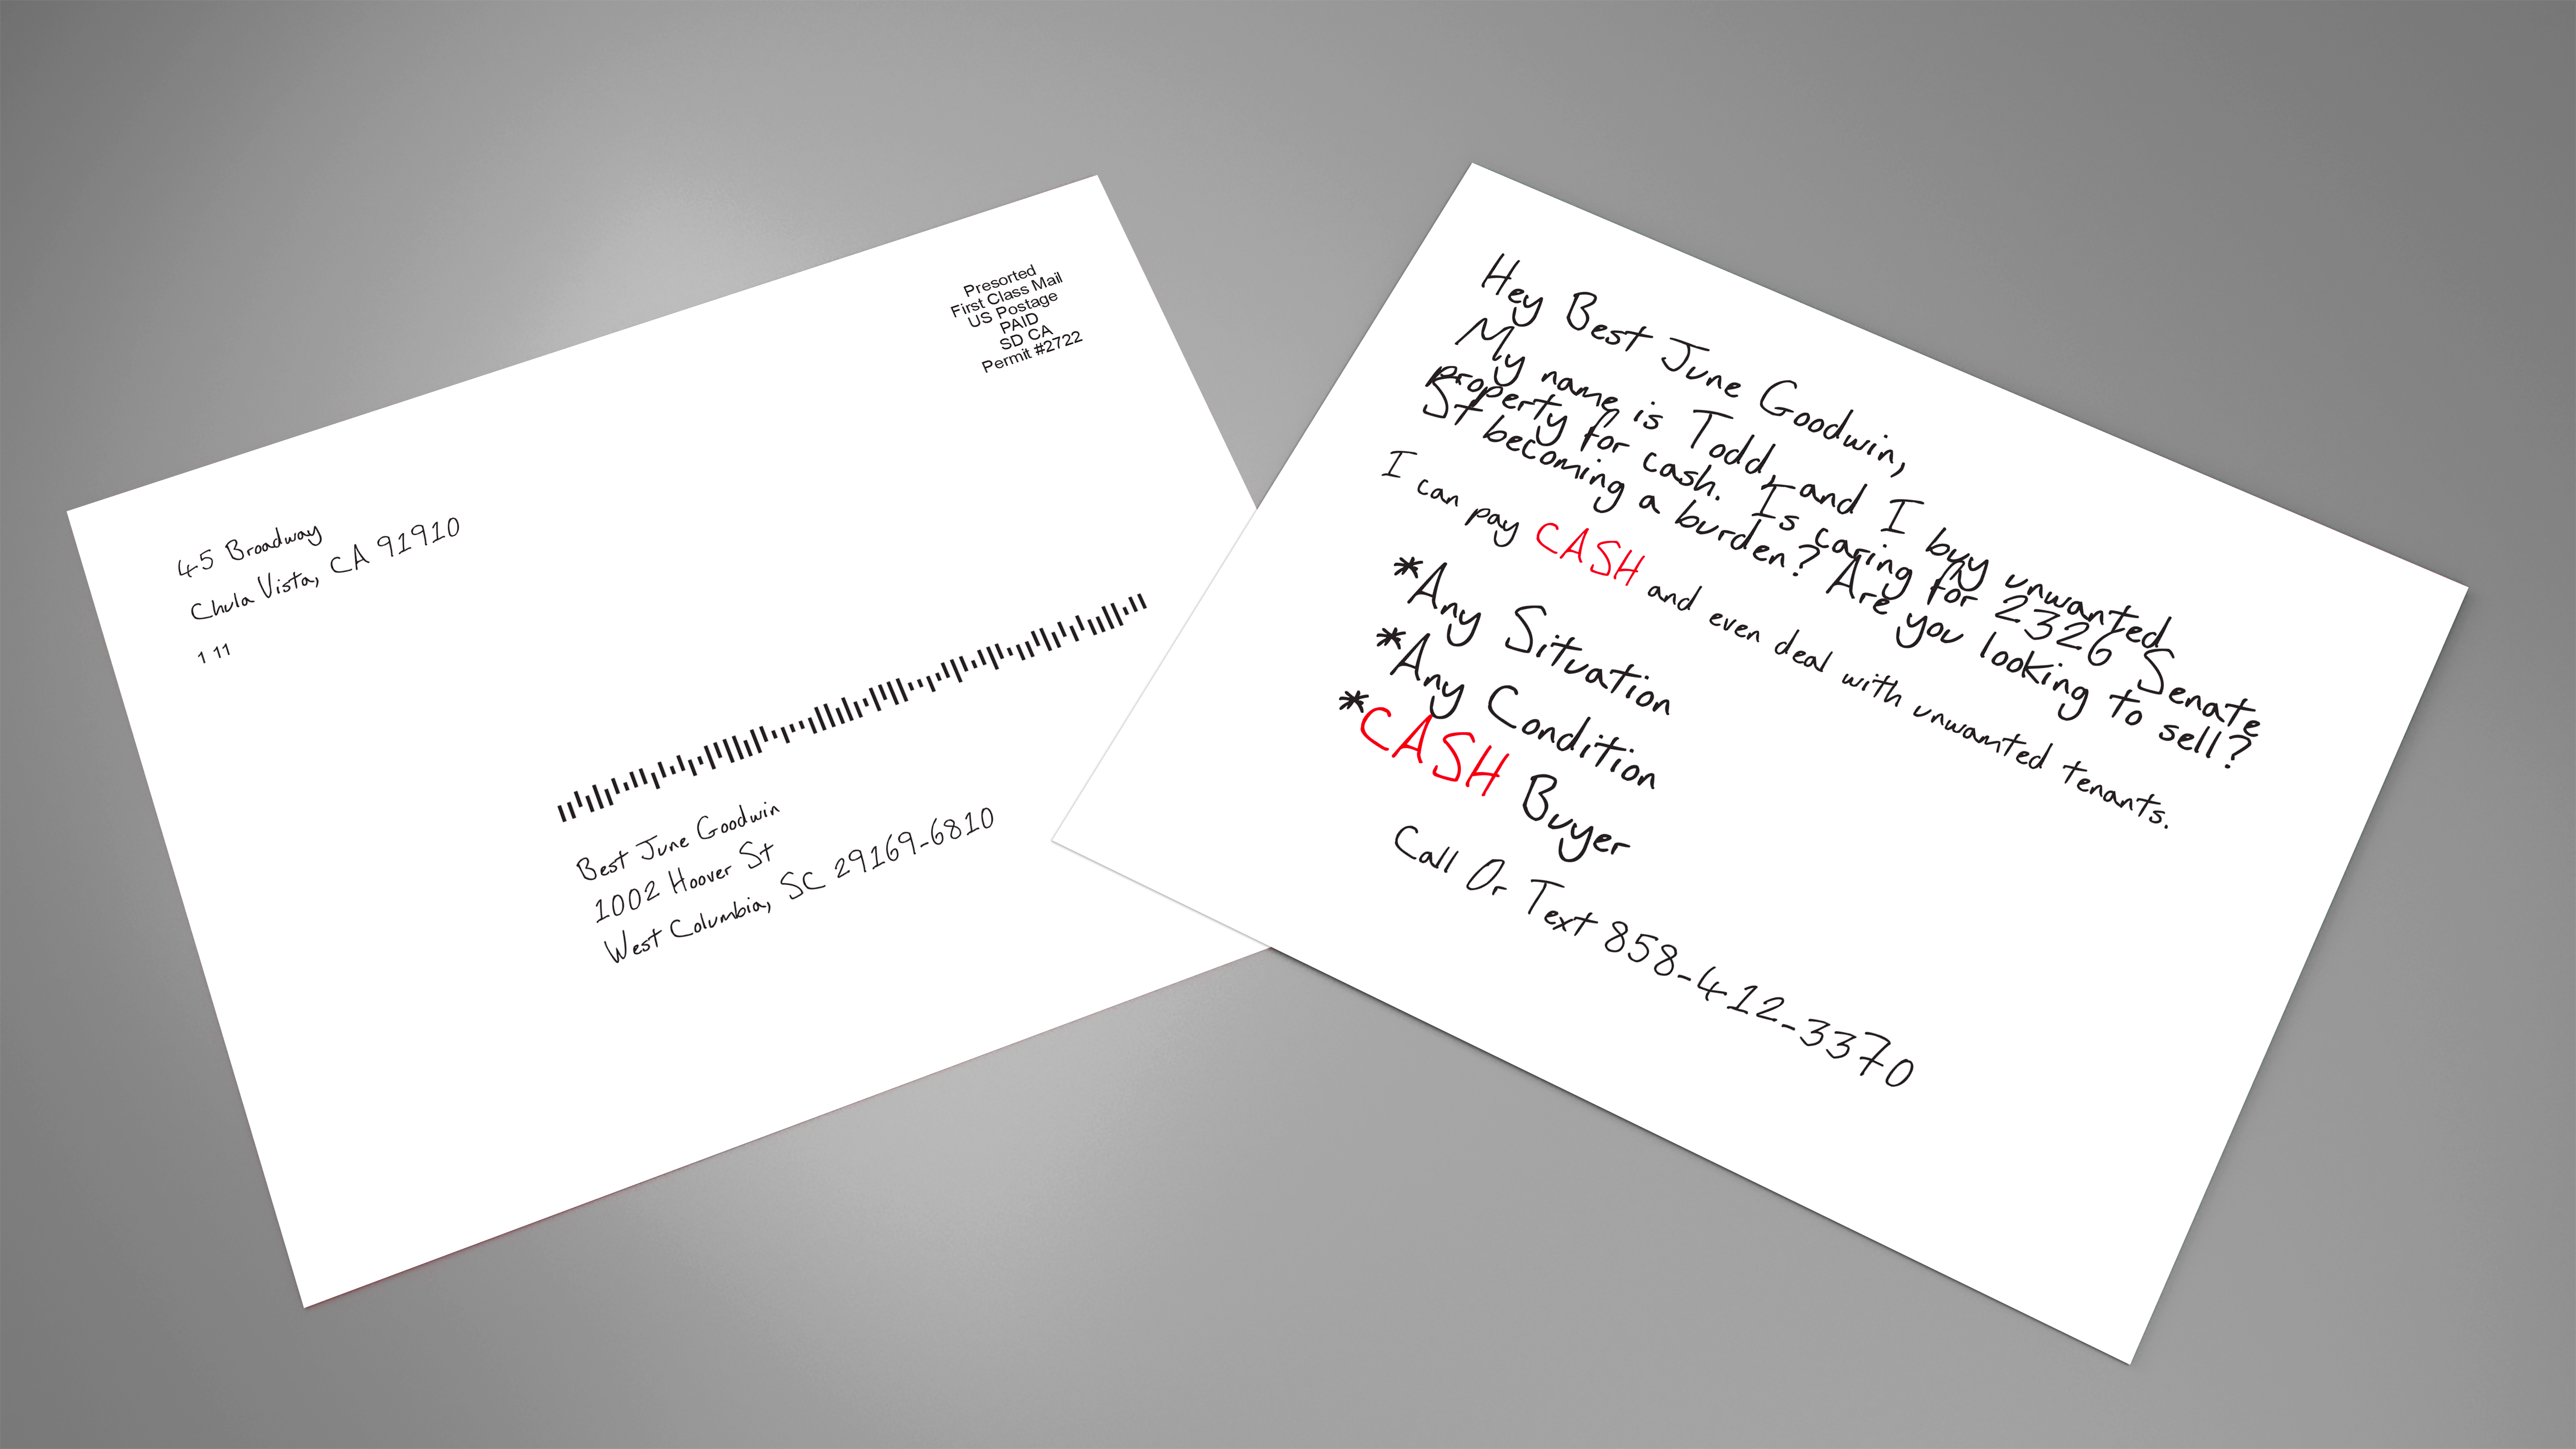 45 Broadway
Chula Vista, CA 91910
1 11
Presorted
First Class Mail
US Postage
PAID
SD CA
Permit #2722
Best June Goodwin
1002 Hoover St
West Columbia, SC 29169-6810
Hey Best June Goodwin,
My name is Todd, and I buy unwanted
property for cash. Is caring for 2326 Senate
St becoming a burden? Are you looking to sell?
I can pay CASH and even deal with unwanted tenants.
*Any Situation
*Any Condition
*CASH Buyer
Call Or Text 858-412-3370